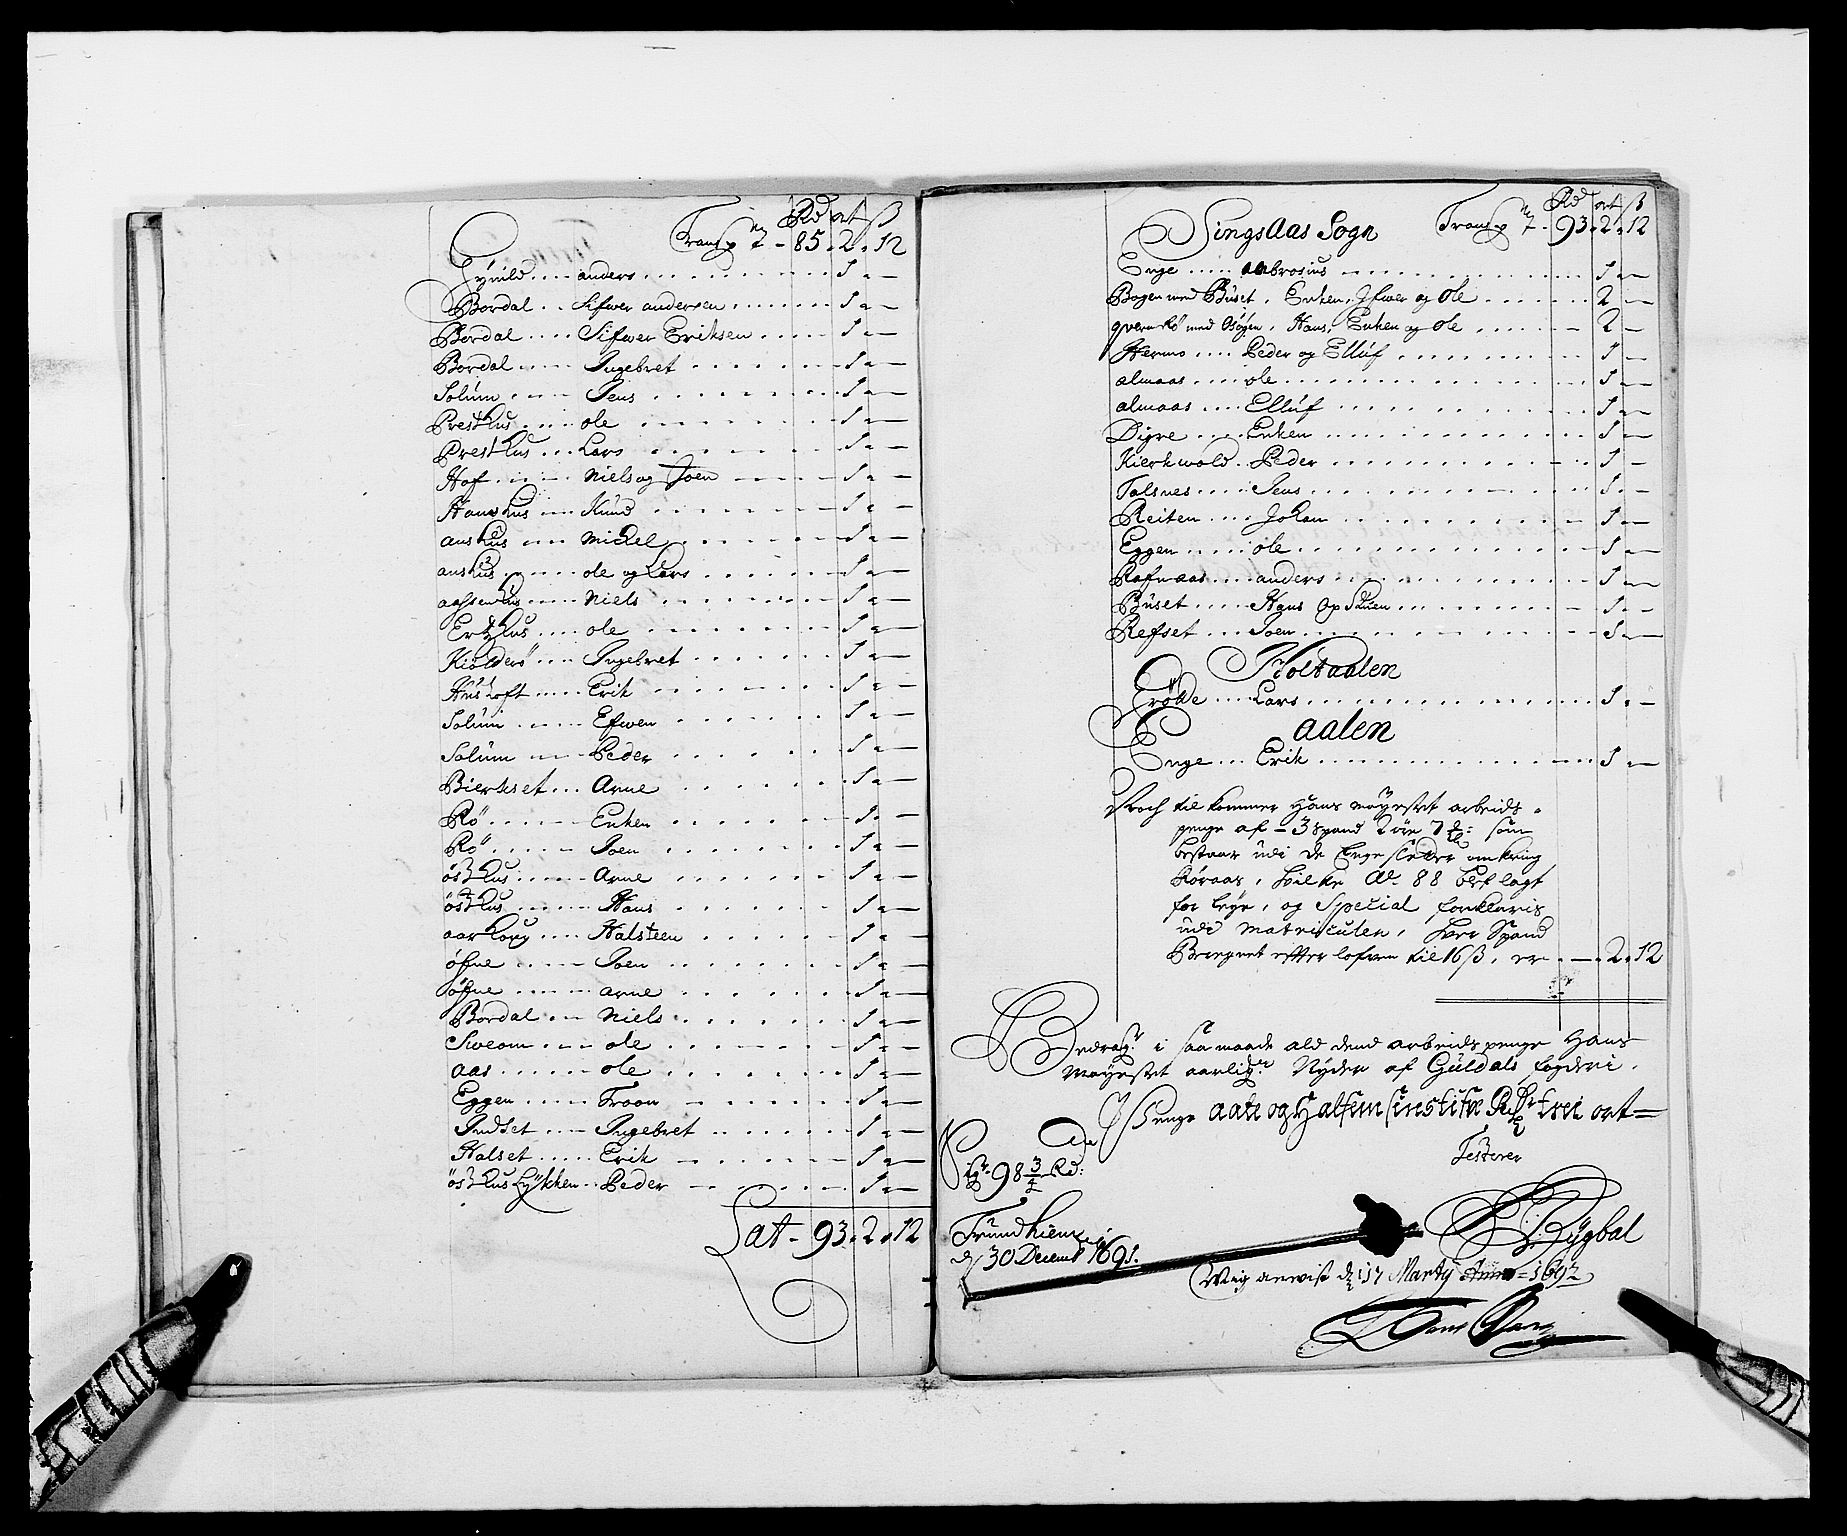 Rd ort ß
Transp - 85 - 2 - 12
Gynild .... anders ........ 1 - -
Bordal .. Sifwer andersen ...... 1 - -
Bordal .... Sifwer Eriksen ...... 1 - -
Bordal .... Ingebret ........ 1 - -
Solum .... Jens ........ 1 - -
Presthus .... ole ........ 1 - -
Presthus ... Lars ........ 1 - -
Hof .... Niels og Joen ...... 1 - -
Hanshus .... Knud ........ 1 - -
anshus .... Michel ........ 1 - -
anshus .... ole og Lars ...... 1 - -
aassenhus .... Niels ........ 1 - -
Ertzhus .... ole ........ 1 - -
Kiolderö .... Ingebret ........ 1 - -
Husloft .... Erik ........ 1 - -
Solum .... Efwen ........ 1 - -
Solum .... Peder ........ 1 - -
Bierkset ... Arne ........ 1 - -
Rö .... Enken ........ 1 - -
Rö .... Joen ........ 1 - -
östhus .... Arne ........ 1 - -
östhus .... Hans ........ 1 - -
aarhoug .... Halsteen ........ 1 - -
öfne .... Joen ........ 1 - -
öfne .... arne ........ 1 - -
Bordal ... Niels ........ 1 - -
Sweom ... ole ........ 1 - -
aas .... ole ........ 1 - -
Eggen .... Troon ........ 1 - -
Indset ... Ingebret ........ 1 - -
Halset .... Erik ........ 1 - -
östhus Lykken .. Peder ...... 1 - -
Lat - 93 - 2 - 12
Rd ort ß
Singsaas Sogn Transp - 93 - 2 - 12
Enge .... ambrosius ........ 1 - -
Bogen med Buset, Enken, Ifwer og ole ...... 2 - -
qvernrö med Osöyen, Hans, Enken og ole .... 2 -
Hermo .... Peder og Elluf ...... 1 -
almaas .... ole ........ 1 - -
almaas .... Elluf ........ 1 - -
Digre .... Enken ........ 1 - -
Kierkwold . Peder ........ 1 -
Talsnes .... Jens ........ 1 - -
Reiten .... Johan ........ 1 - -
Eggen .... ole ........ 1 - -
Rafnaas .... anders ........ 1 - -
Buset .... Hans ...... 1 - -
Refset ... Joen ........ 1 - -
Holtaalen
Grödde .... Lars ........ 1 - -
aalen
Enge ... Erik ........ 1 - -
Noch til kommer Hans mayestet arbeids-
penge af - 3 spand 2 öre 7 : som
bestaar udi de Engesletter omkring
Röraas, hvilke Ao 88 blef lagt
for leye, og Special forklaris
udi Matriculen, hver Spand
Beregnet effter lofven til 16 ß, er - 2 - 12
Bedrag i saa maade ald dend arbeids penge Hans
Mayestet aarlig Nyder af Guldals fogderi.
I Penge aatte og Halfemsinstitue Rdr trei ort
Er 98 3/4 Rd:
Testerer
Trundhiem
d 30 Decemb 1691.
Rygbal
Marty Anno 1692